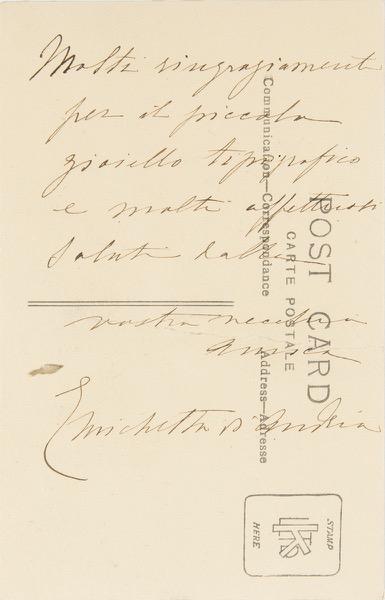 Molti ringraziamenti
per il piccolo
gioiello tipografico
e molti affettuosi
saluti dalla
vostra vecchia
amica
Enrichetta D'Andria
POST CARD
CARTE POSTALE
Communication—Correspondance
Address—Adresse
STAMP
HERE